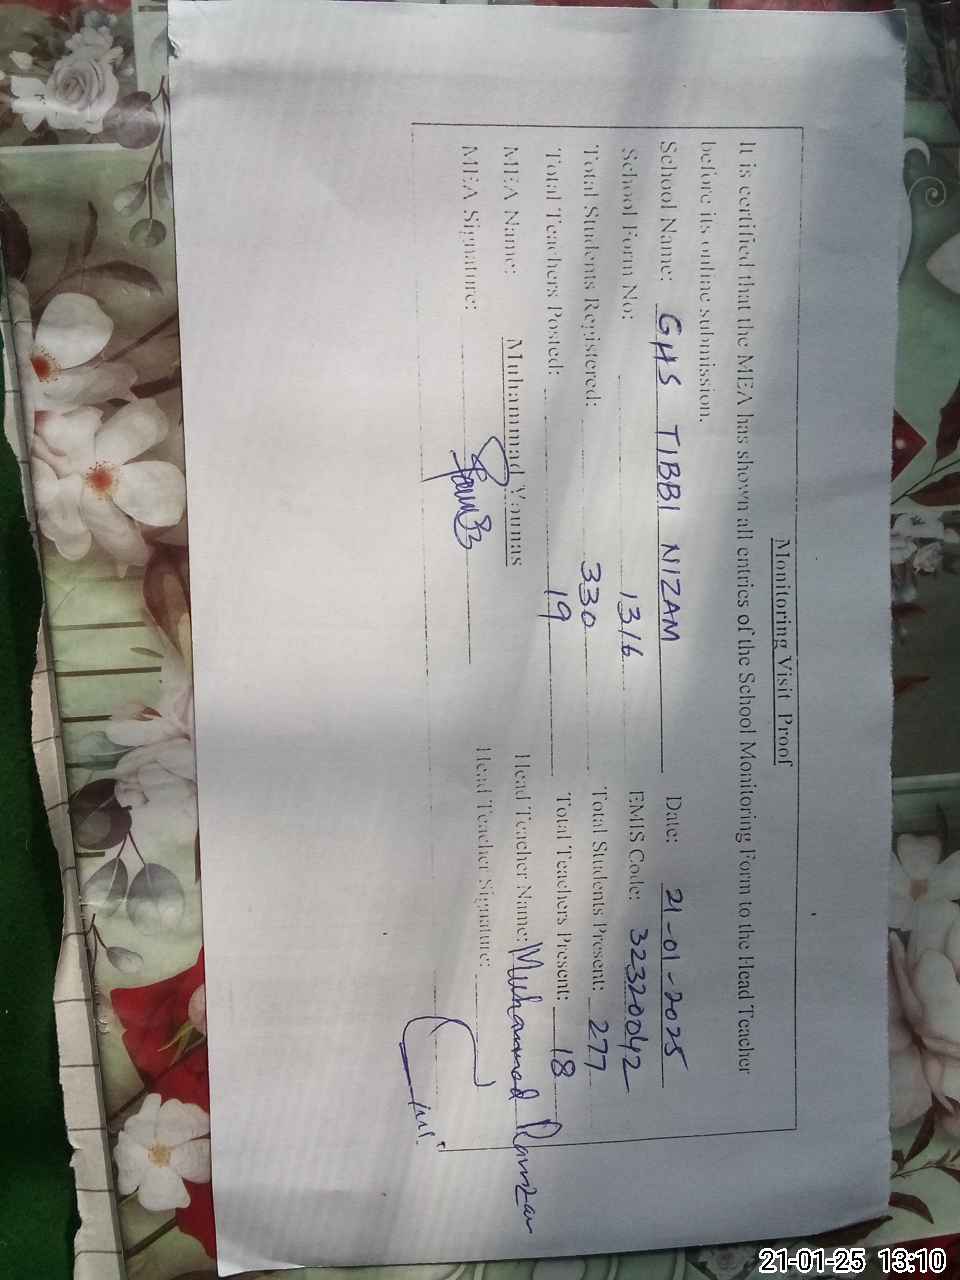 Monitoring Visit Proof
It is certified that the MEA has shown all entries of the School Monitoring Form to the Head Teacher
before its online submission.
School Name: GHS TIBBI NIZAM Date: 21-01-2025
School Form No: 1316 EMIS Code: 32320042
Total Students Registered: 330 Total Students Present: 277
Total Teachers Posted: 19 Total Teachers Present: 18
MEA Name: Muhammad Younas Head Teacher Name: Muhammad Ramzan
MEA Signature: Head Teacher Signature:
21-01-25 13:10